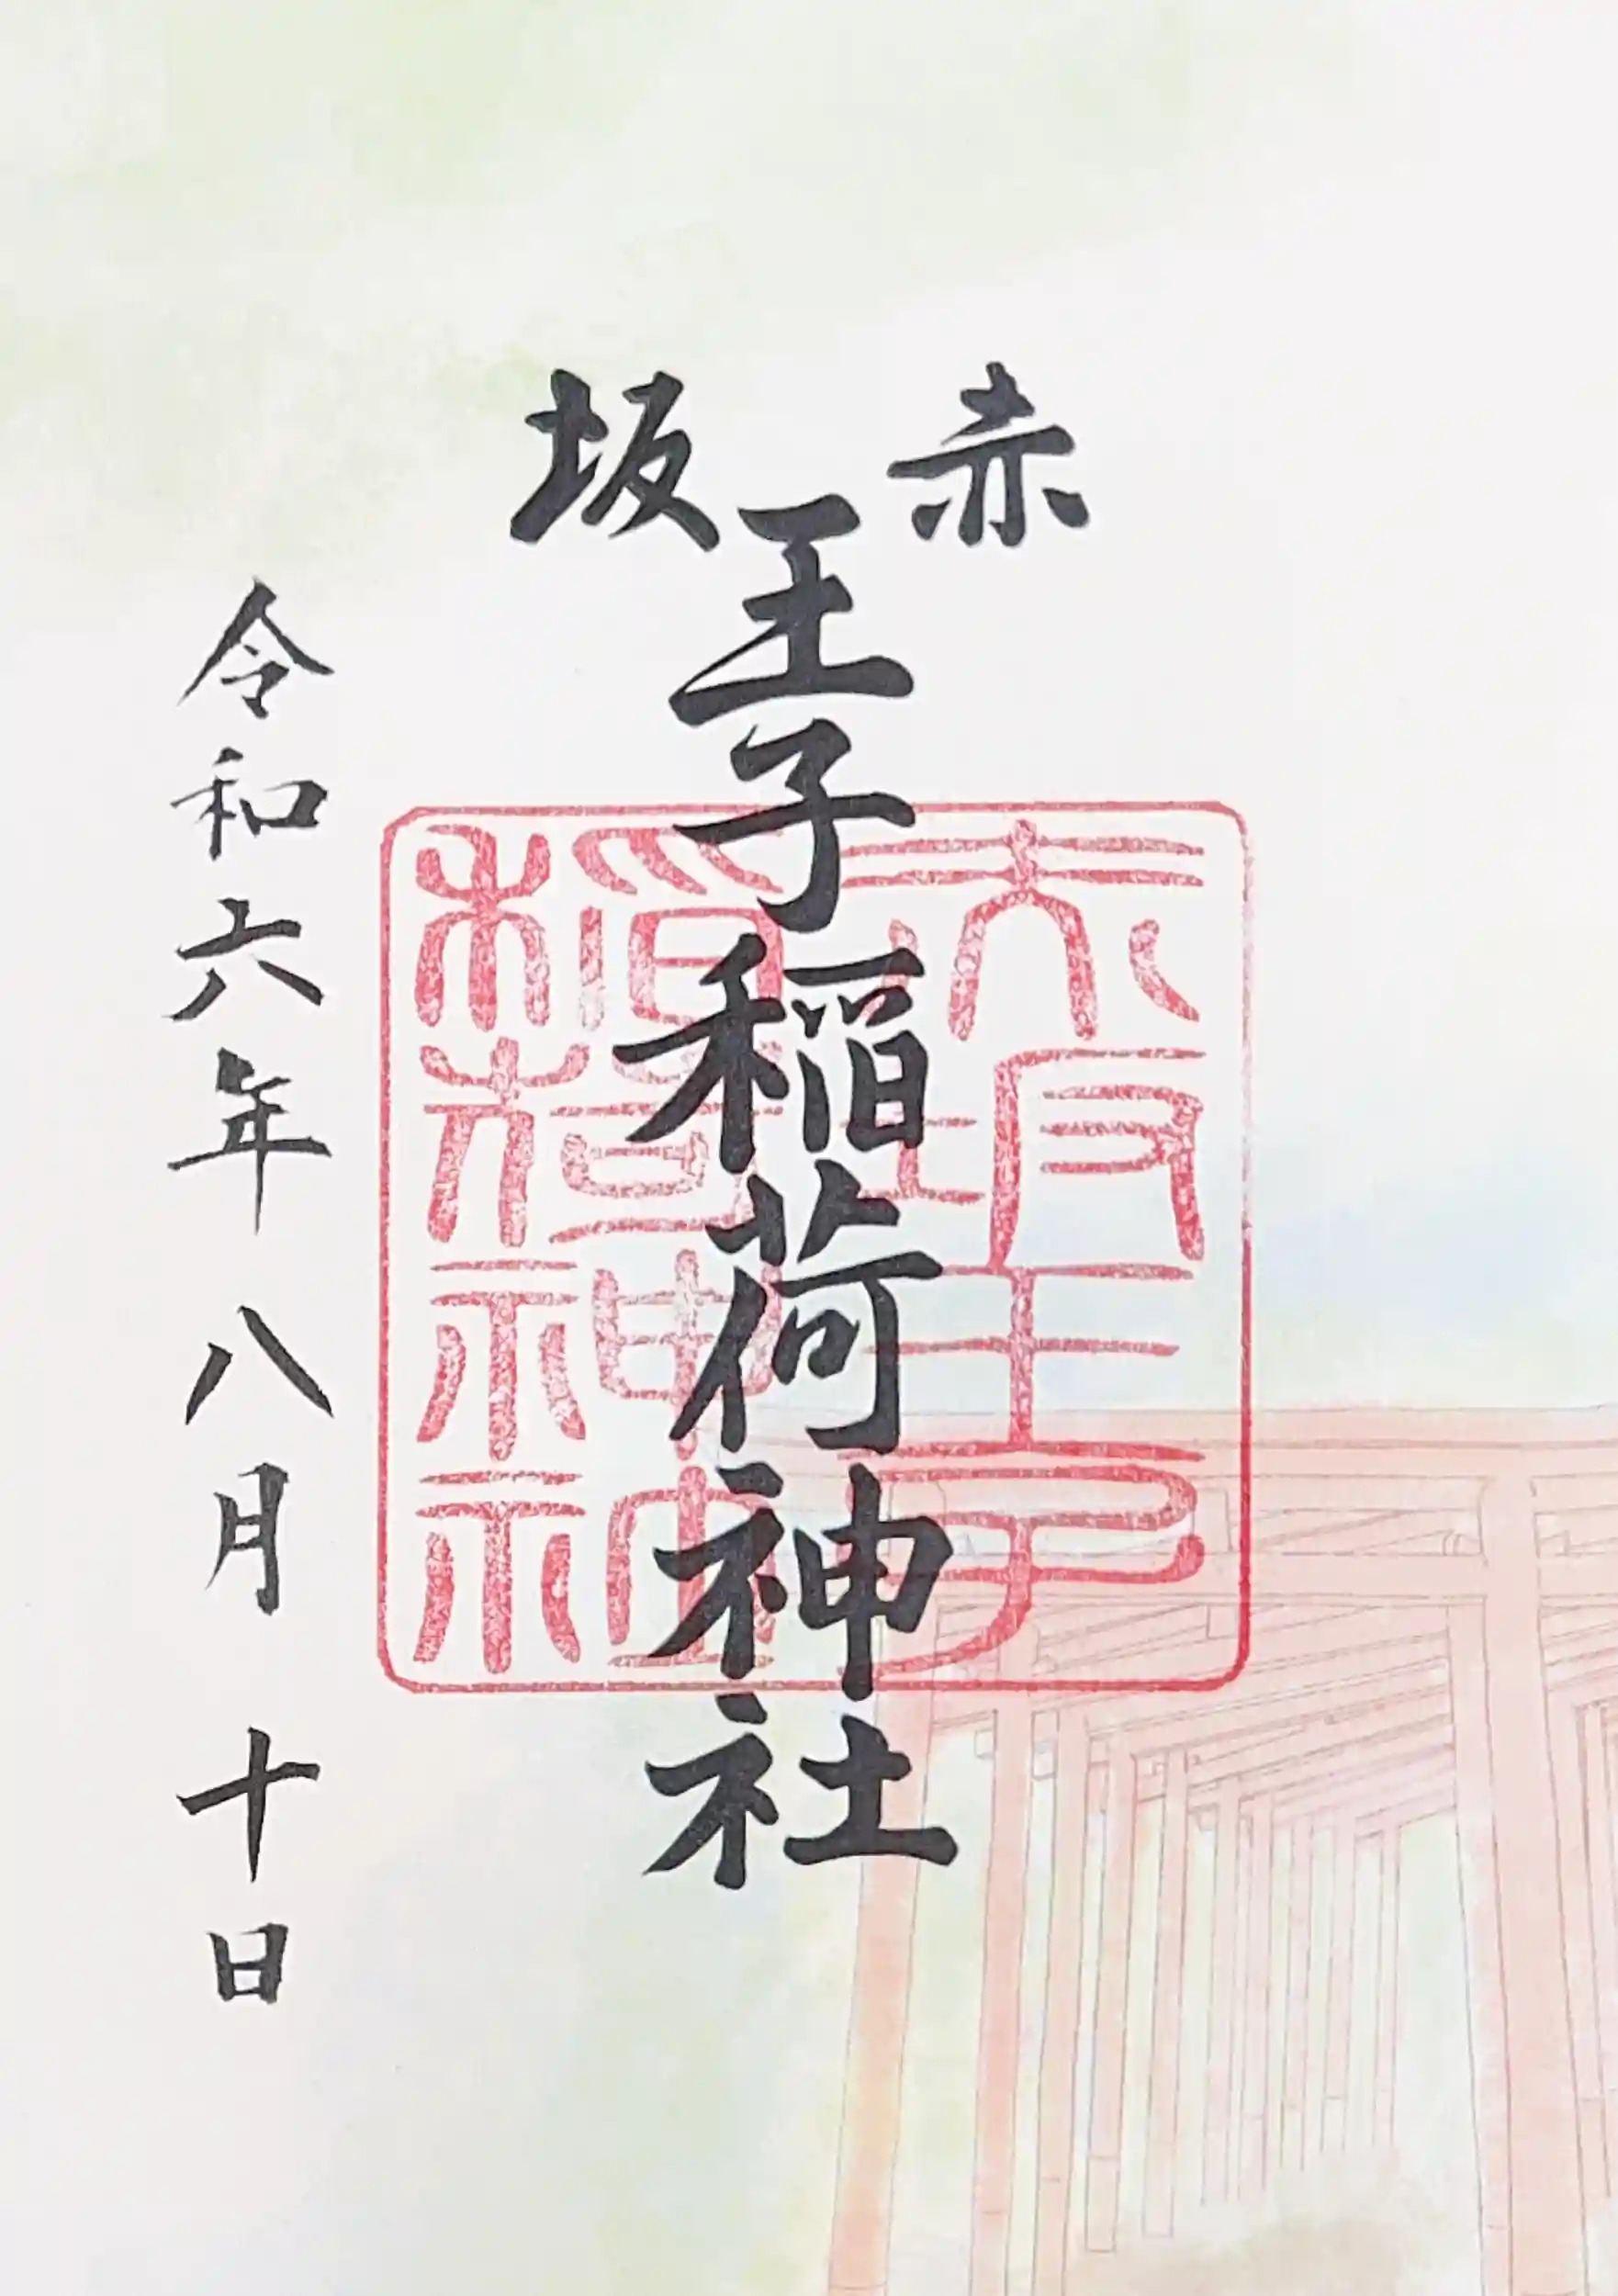 赤坂
王子稲荷神社
赤坂王子
稲荷神社
令和六年八月十日